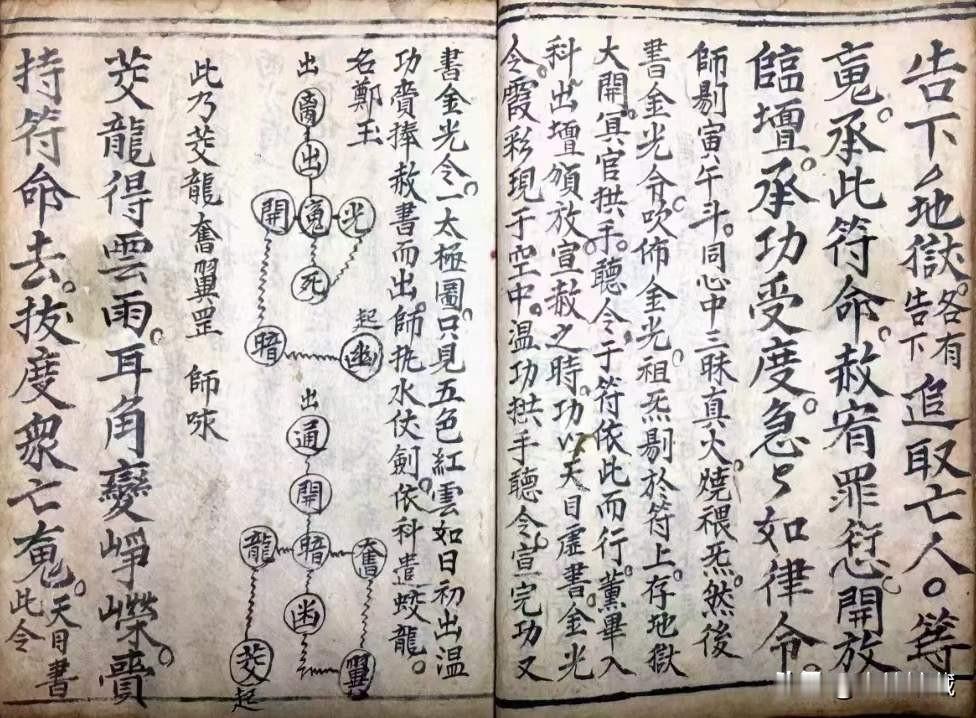 告下地獄。各有告下追取亡人。等
䰟。承此符命。赦宥罪愆。開放
臨壇。承功受度。急々如律令。
師剔寅午斗。同心中三昧真火。燒
炁。然後
書金光令。吹佈金光祖炁剔於符上。存地獄
大開。冥官拱手。聽令于符依此而行。薰畢入
科出壇。頒放宣赦之時。功以天目虛書。金光
令。霞彩現于空中。温功拱手聽令。宣完功又
書金光令。一太極圖。只見五色紅雲如日初出温
功賫捧赦書而出。師执水仗劍。依科遣蛟龍。
名鄭玉
出
离
出
開 䰟 光
死
暗 幽 起
出
通
開
龍 暗 奮
幽
茭 起 翼
此乃茭龍奮翼罡 師咏
茭龍得雲雨。耳角變崢嶸。賫
持符命去。拔度衆亡䰟。天目書此令